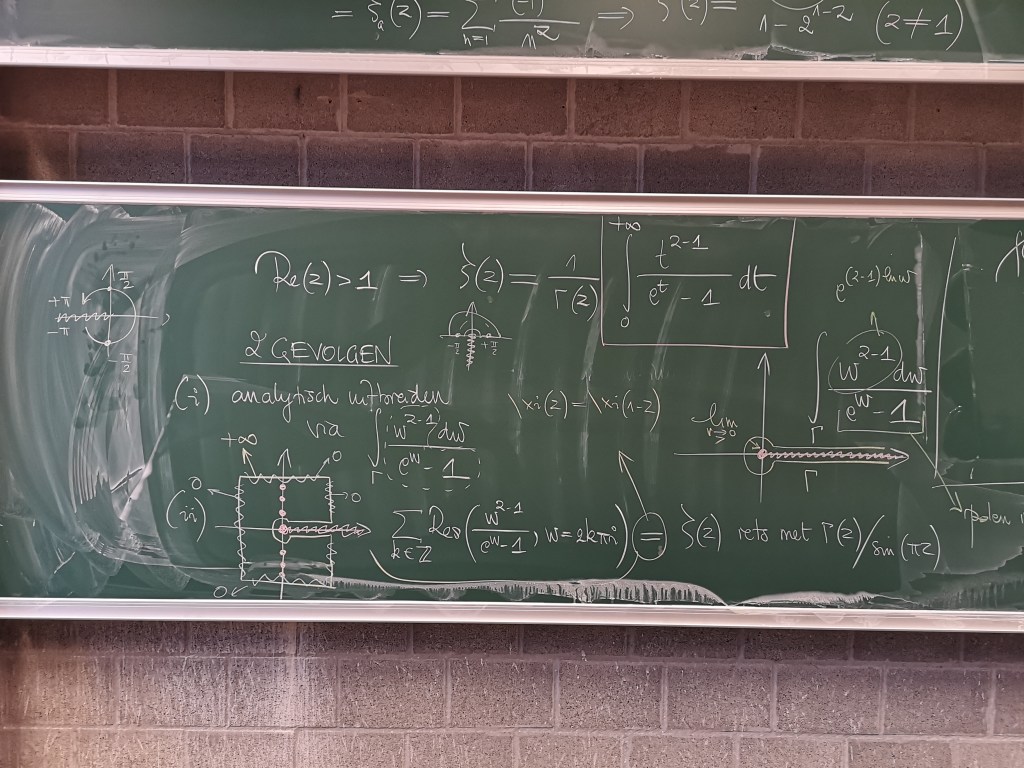 = ζₐ(z) = ∑ₙ₌₁ (-1) / n^z ⇒ ζ(z) = 1-2^{1-z} (z≠1)
Re(z)>1 ⇒ ζ(z) = 1/Γ(z) ∫₀^{+∞} t^{z-1}/(e^t - 1) dt
e^{(z-1)ln w}
π/2
+π
-π
-π/2
-π/2 +π/2
∫_Γ w^{z-1}dw/(e^w - 1)
2 GEVOLGEN
(i) analytisch uitbreiden
via ∫_Γ w^{z-1}dw/(e^w - 1)
\xi(z) = \xi(1-z)
lim r→0
Γ
Γ
+∞ 0
0 0
0
(ii) ∑_{k∈ℤ} Res(w^{z-1}/(e^w-1), w=2kπi) = ζ(z) iets met Γ(z)/sin(πz)
polen